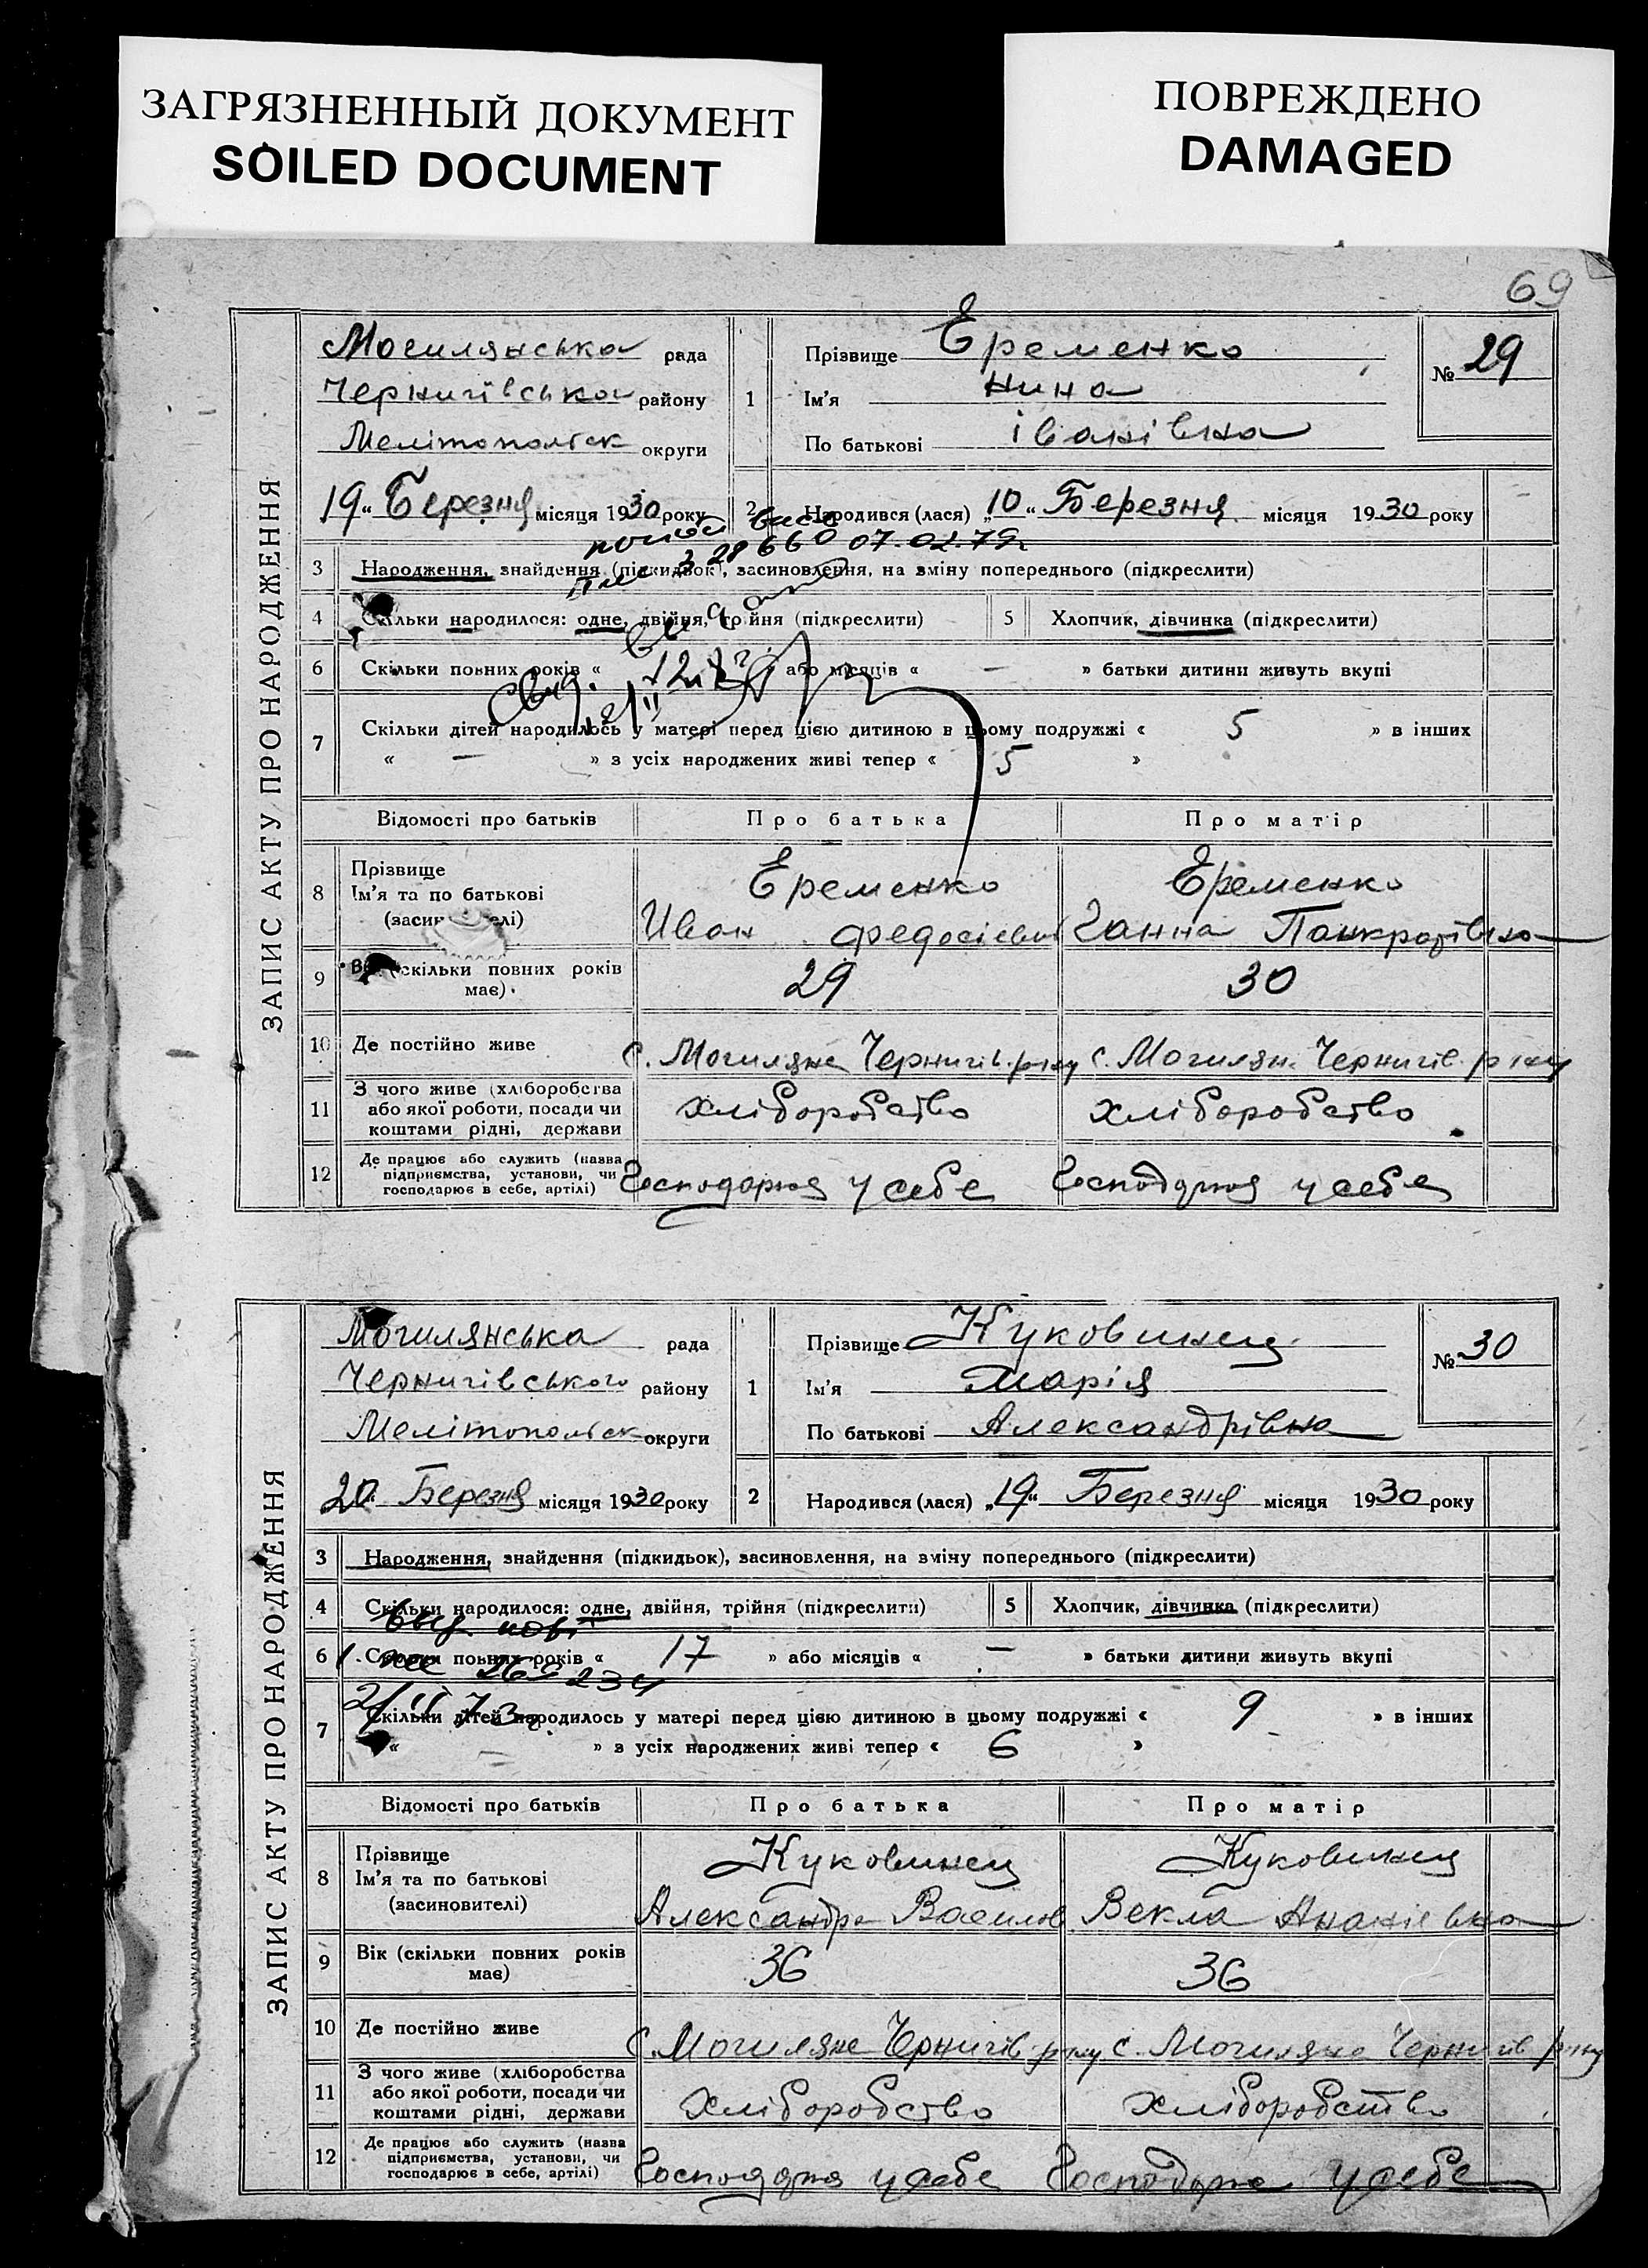 ЗАГРЯЗНЕННЫЙ ДОКУМЕНТ
SOILED DOCUMENT
ПОВРЕЖДЕНО
DAMAGED
69
ЗАПИС АКТУ ПРО НАРОДЖЕННЯ
Могилянська рада
Чернигівська району
Мелітопольск округи
19 " Березня місяця 1930 року
1 Прізвище Еременко
Ім'я Нина
По батькові іванівна
№ 29
2 Народився (лася) „10 " Березня місяця 1930 року
28660 07.02.79
3 Народження, знайдення (підкидьок), засиновлення, на зміну попереднього (підкреслити)
4 Скільки народилося: одне, двійня, трійня (підкреслити) 5 Хлопчик, дівчинка (підкреслити)
6 Скільки повних років « 12 » або місяців « — » батьки дитини живуть вкупі
7 Скільки дітей народилось у матері перед цією дитиною в цьому подружжі « 5 » в інших
« — » з усіх народжених живі тепер « 5 »
Відомості про батьків Про батька Про матір
8 Прізвище Ім'я та по батькові (засиновителі)
Еременко Еременко
Иван Федосіевич Ганна Панкратівна
9 Вік (скільки повних років має) 29 30
10 Де постійно живе с. Могиляне Чернигів. р-ну с. Могилян. Чернигів р-ну
11 З чого живе (хліборобства або якої роботи, посади чи коштами рідні, держави
хліборобство хліборобство
12 Де працює або служить (назва підприємства, установи, чи господарює в себе, артілі)
у себе у себе
ЗАПИС АКТУ ПРО НАРОДЖЕННЯ
Могилянська рада
Чернигівського району
Мелітопольск округи
20 " Березня місяця 1930 року
1 Прізвище Куковинец
Ім'я Марія
По батькові Александрівна
№ 30
2 Народився (лася) „19" Березня місяця 1930 року
3 Народження, знайдення (підкидьок), засиновлення, на зміну попереднього (підкреслити)
4 Скільки народилося: одне, двійня, трійня (підкреслити) 5 Хлопчик, дівчинка (підкреслити)
6 Скільки повних років « 17 » або місяців « — » батьки дитини живуть вкупі
7 Скільки дітей народилось у матері перед цією дитиною в цьому подружжі « 9 » в інших
« — » з усіх народжених живі тепер « 6 »
Відомості про батьків Про батька Про матір
8 Прізвище Ім'я та по батькові (засиновителі)
Куковинец Куковинец
Александр Васильов Векла Ананіевна
9 Вік (скільки повних років має) 36 36
10 Де постійно живе с. Могиляне Чернигів. р-ну с. Могиляне Чернигів р-ну
11 З чого живе (хліборобства або якої роботи, посади чи коштами рідні, держави
Хліборобство хліборобство
12 Де працює або служить (назва підприємства, установи, чи господарює в себе, артілі)
у себе у себе